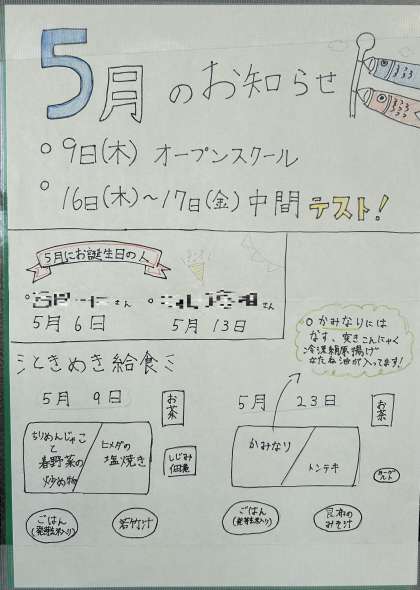 5月のお知らせ
○ 9日(木) オープンスクール
○ 16日(木)～17日(金) 中間テスト!
5月にお誕生日の人
さん
5月6日
さん
5月13日
ときめき給食
5月 9日
お茶
ちりめんじゃこ
と
春野菜の
炒め物
ヒメダの
塩焼き
しじみ
佃煮
ごはん
(発芽玄米入り)
若竹汁
○ かみなりには
なす、突きこんにゃく
冷凍絹厚揚げ
なたね油が入ってます!
5月 23日
お茶
かみなり
トンテキ
ヨーグルト
ごはん
(発芽玄米入り)
昆布の
みそ汁